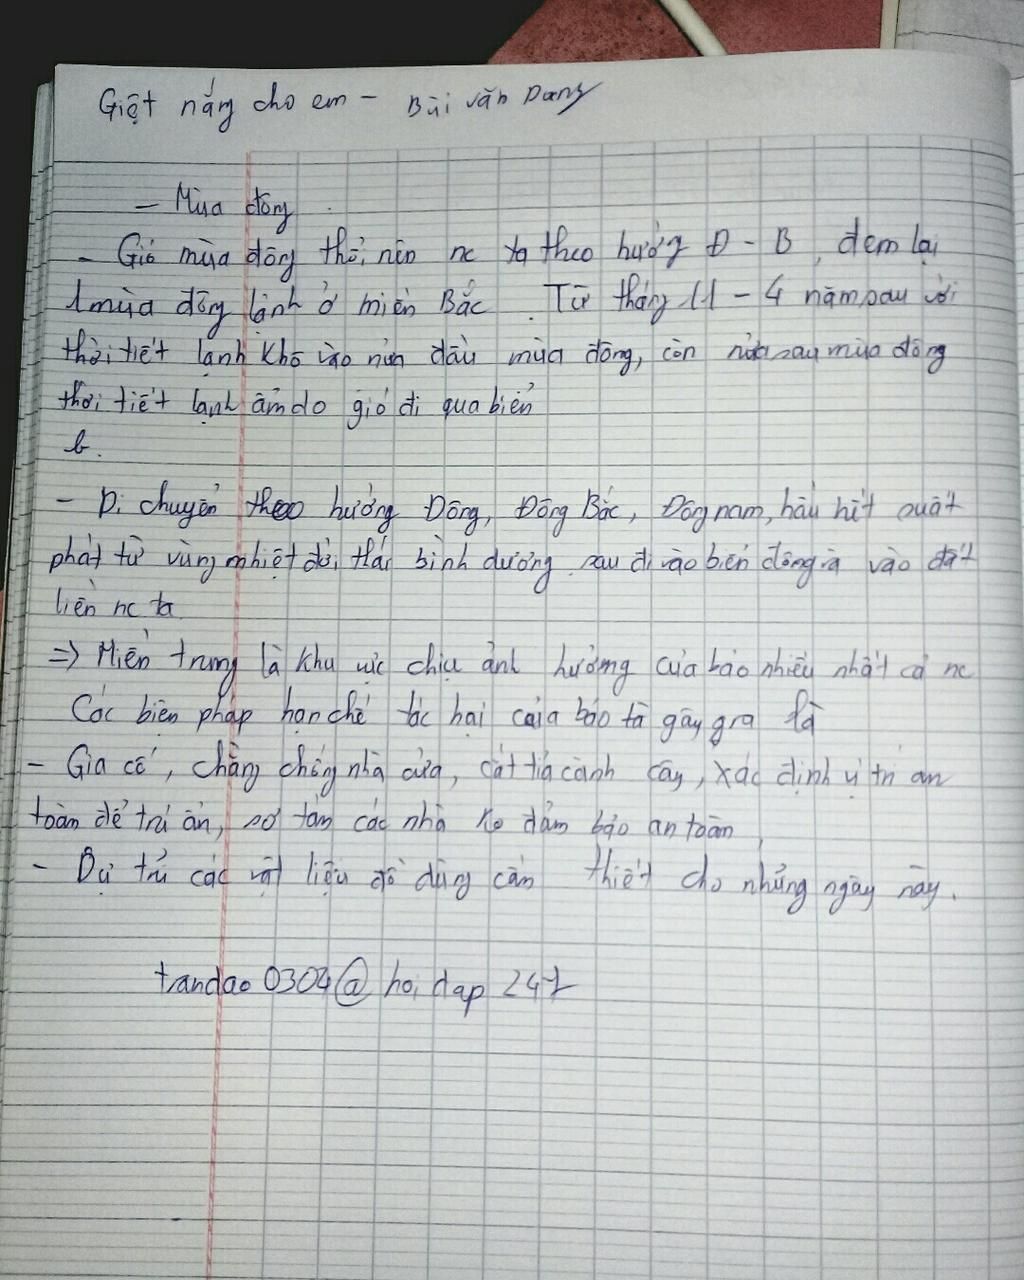 Giệt nắng cho em - Bùi Văn Dang
- Mùa đông
- Gió mùa đông thổi nên nc ta theo hướng Đ - B, đem lại
1 mùa đông lạnh ở miền Bắc. Từ tháng 11 - 4 năm sau với
thời tiết lạnh khô vào nửa đầu mùa đông, còn nửa sau mùa đông
thời tiết lạnh ẩm do gió đi qua biển
b.
- Di chuyển theo hướng Đông, Đông Bắc, Đông nam, hầu hết xuất
phát từ vùng nhiệt đới thái bình dương sau đi vào biển đông và vào đất
liền nc ta
=> Miền trung là khu vực chịu ảnh hưởng của bão nhiều nhất cả nc
Các biện pháp hạn chế tác hại của bão tà gây gra là
- Gia cố, chằng chống nhà cửa, cắt tỉa cành cây, xác định vị trí an
toàn để trú ẩn, sơ tán các nhà ko đảm bảo an toàn
- Dự trữ các vật liệu đồ dùng cần thiết cho những ngày này.
trandao0304@hoidap247